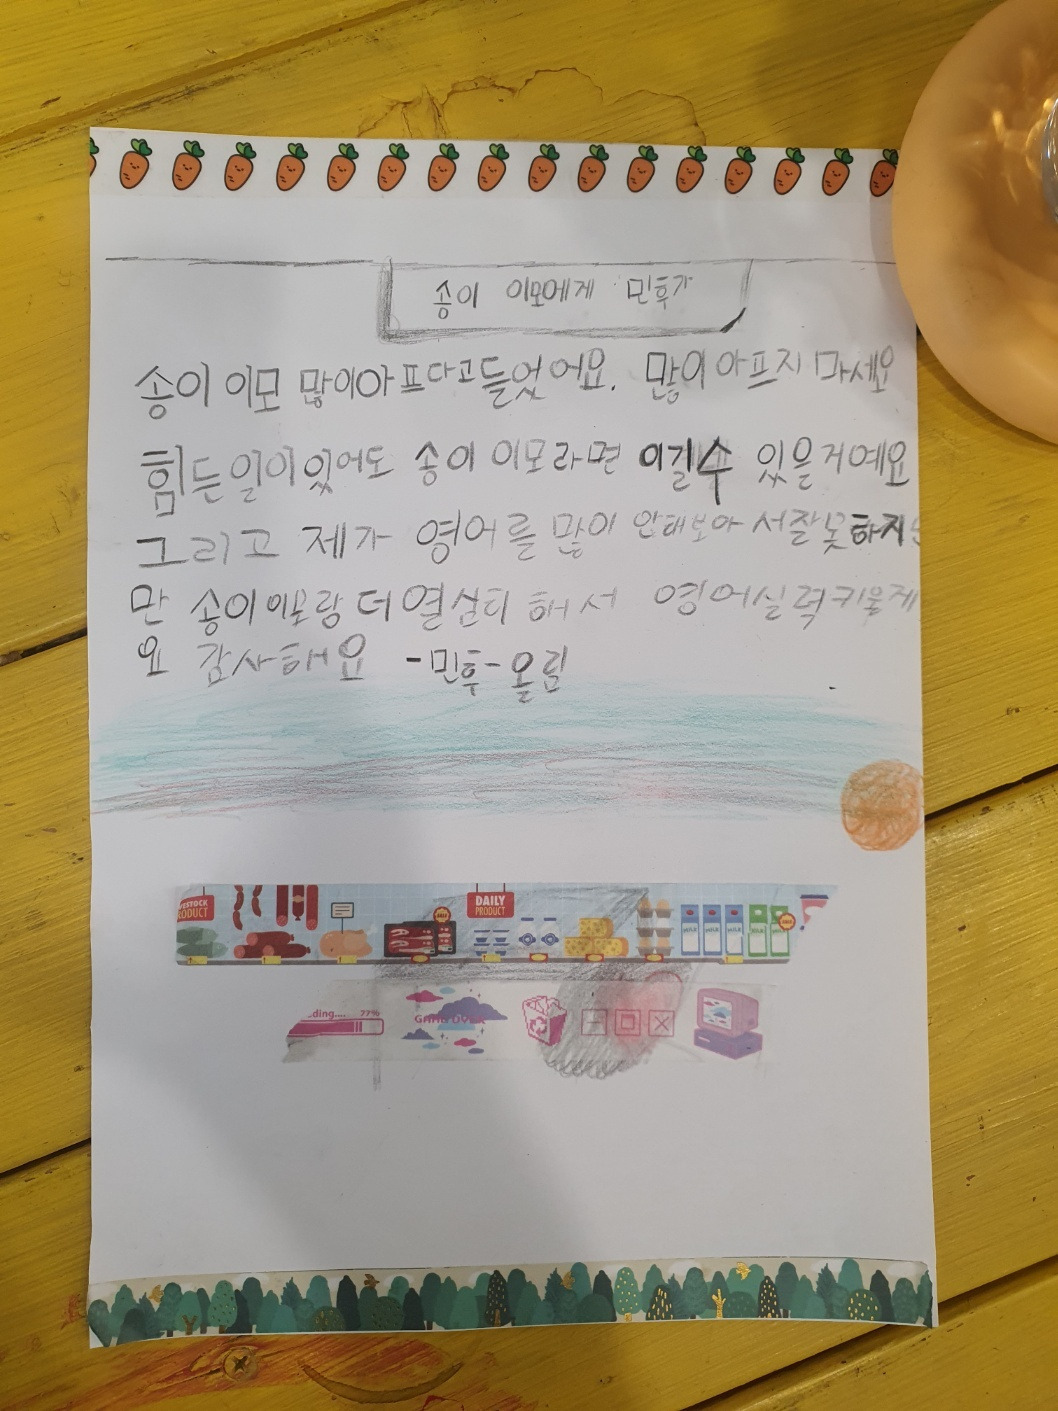 송이 이모에게 민후가
송이 이모 많이아프다고들었어요. 많이아프지 마세요
힘든일이있어도 송이 이모라면 이길수 있을거예요
그리고 제가 영어를 많이 안해보아서잘못하지
만 송이이모랑더열심히 해서 영어실력키울게
요 감사해요 -민후-올림
PRODUCT
DAILY
PRODUCT
MILK MILK MILK MILK MILK
ding.... 77%
GAME OVER